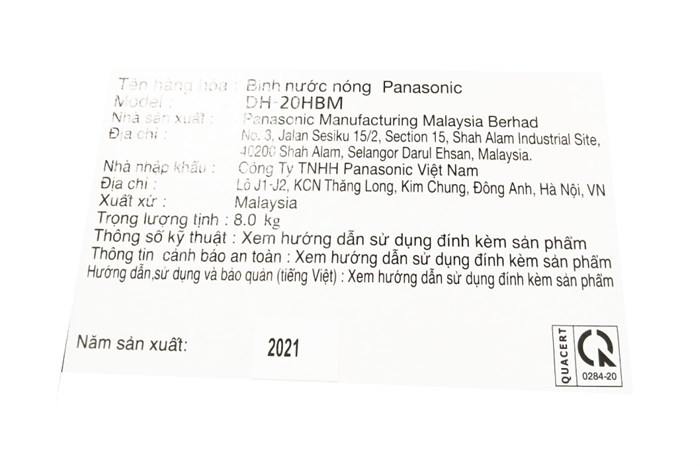 Tên hàng hóa : Bình nước nóng Panasonic
Model : DH-20HBM
Nhà sản xuất : Panasonic Manufacturing Malaysia Berhad
Địa chỉ : No. 3, Jalan Sesiku 15/2, Section 15, Shah Alam Industrial Site,
40200 Shah Alam, Selangor Darul Ehsan, Malaysia.
Nhà nhập khẩu : Công Ty TNHH Panasonic Việt Nam
Địa chỉ : Lô J1-J2, KCN Thăng Long, Kim Chung, Đông Anh, Hà Nội, VN
Xuất xứ : Malaysia
Trọng lượng tịnh : 8.0 kg
Thông số kỹ thuật : Xem hướng dẫn sử dụng đính kèm sản phẩm
Thông tin cảnh báo an toàn : Xem hướng dẫn sử dụng đính kèm sản phẩm
Hướng dẫn,sử dụng và bảo quản (tiếng Việt) : Xem hướng dẫn sử dụng đính kèm sản phẩm
Năm sản xuất: 2021
QUACERT
0284-20